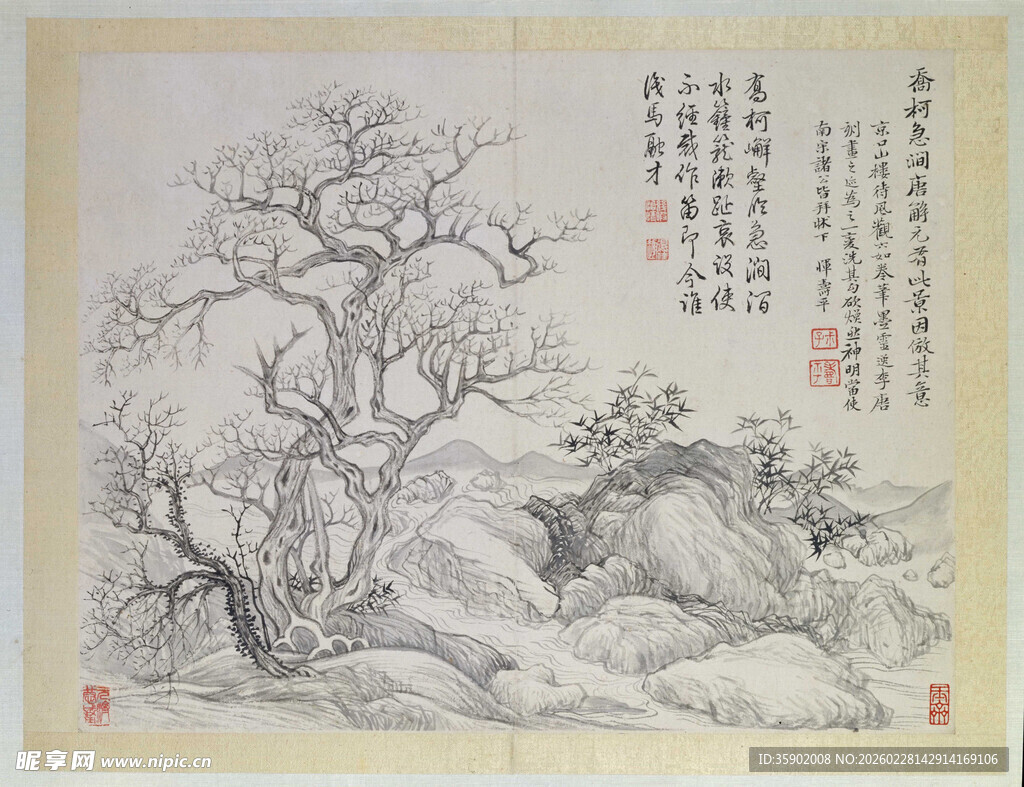 喬柯急澗唐解元有此景因倣其意
京口山樓待風觀六如卷筆墨靈逸李唐
刻畫之迹為之一變洗其勾斫煥然神明當使
南宋諸公皆拜牀下 惲壽平
高柯嶰壑臨急澗
水籊籊漱趾哀設使
不經裁作笛即今誰
識馬融才
昵享网 www.nipic.cn
ID:35902008 NO:20260228142914169106